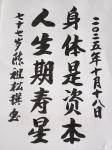 二〇二五年十月十八日
身体是资本
人生期寿星
七十七岁陈祖松撰书